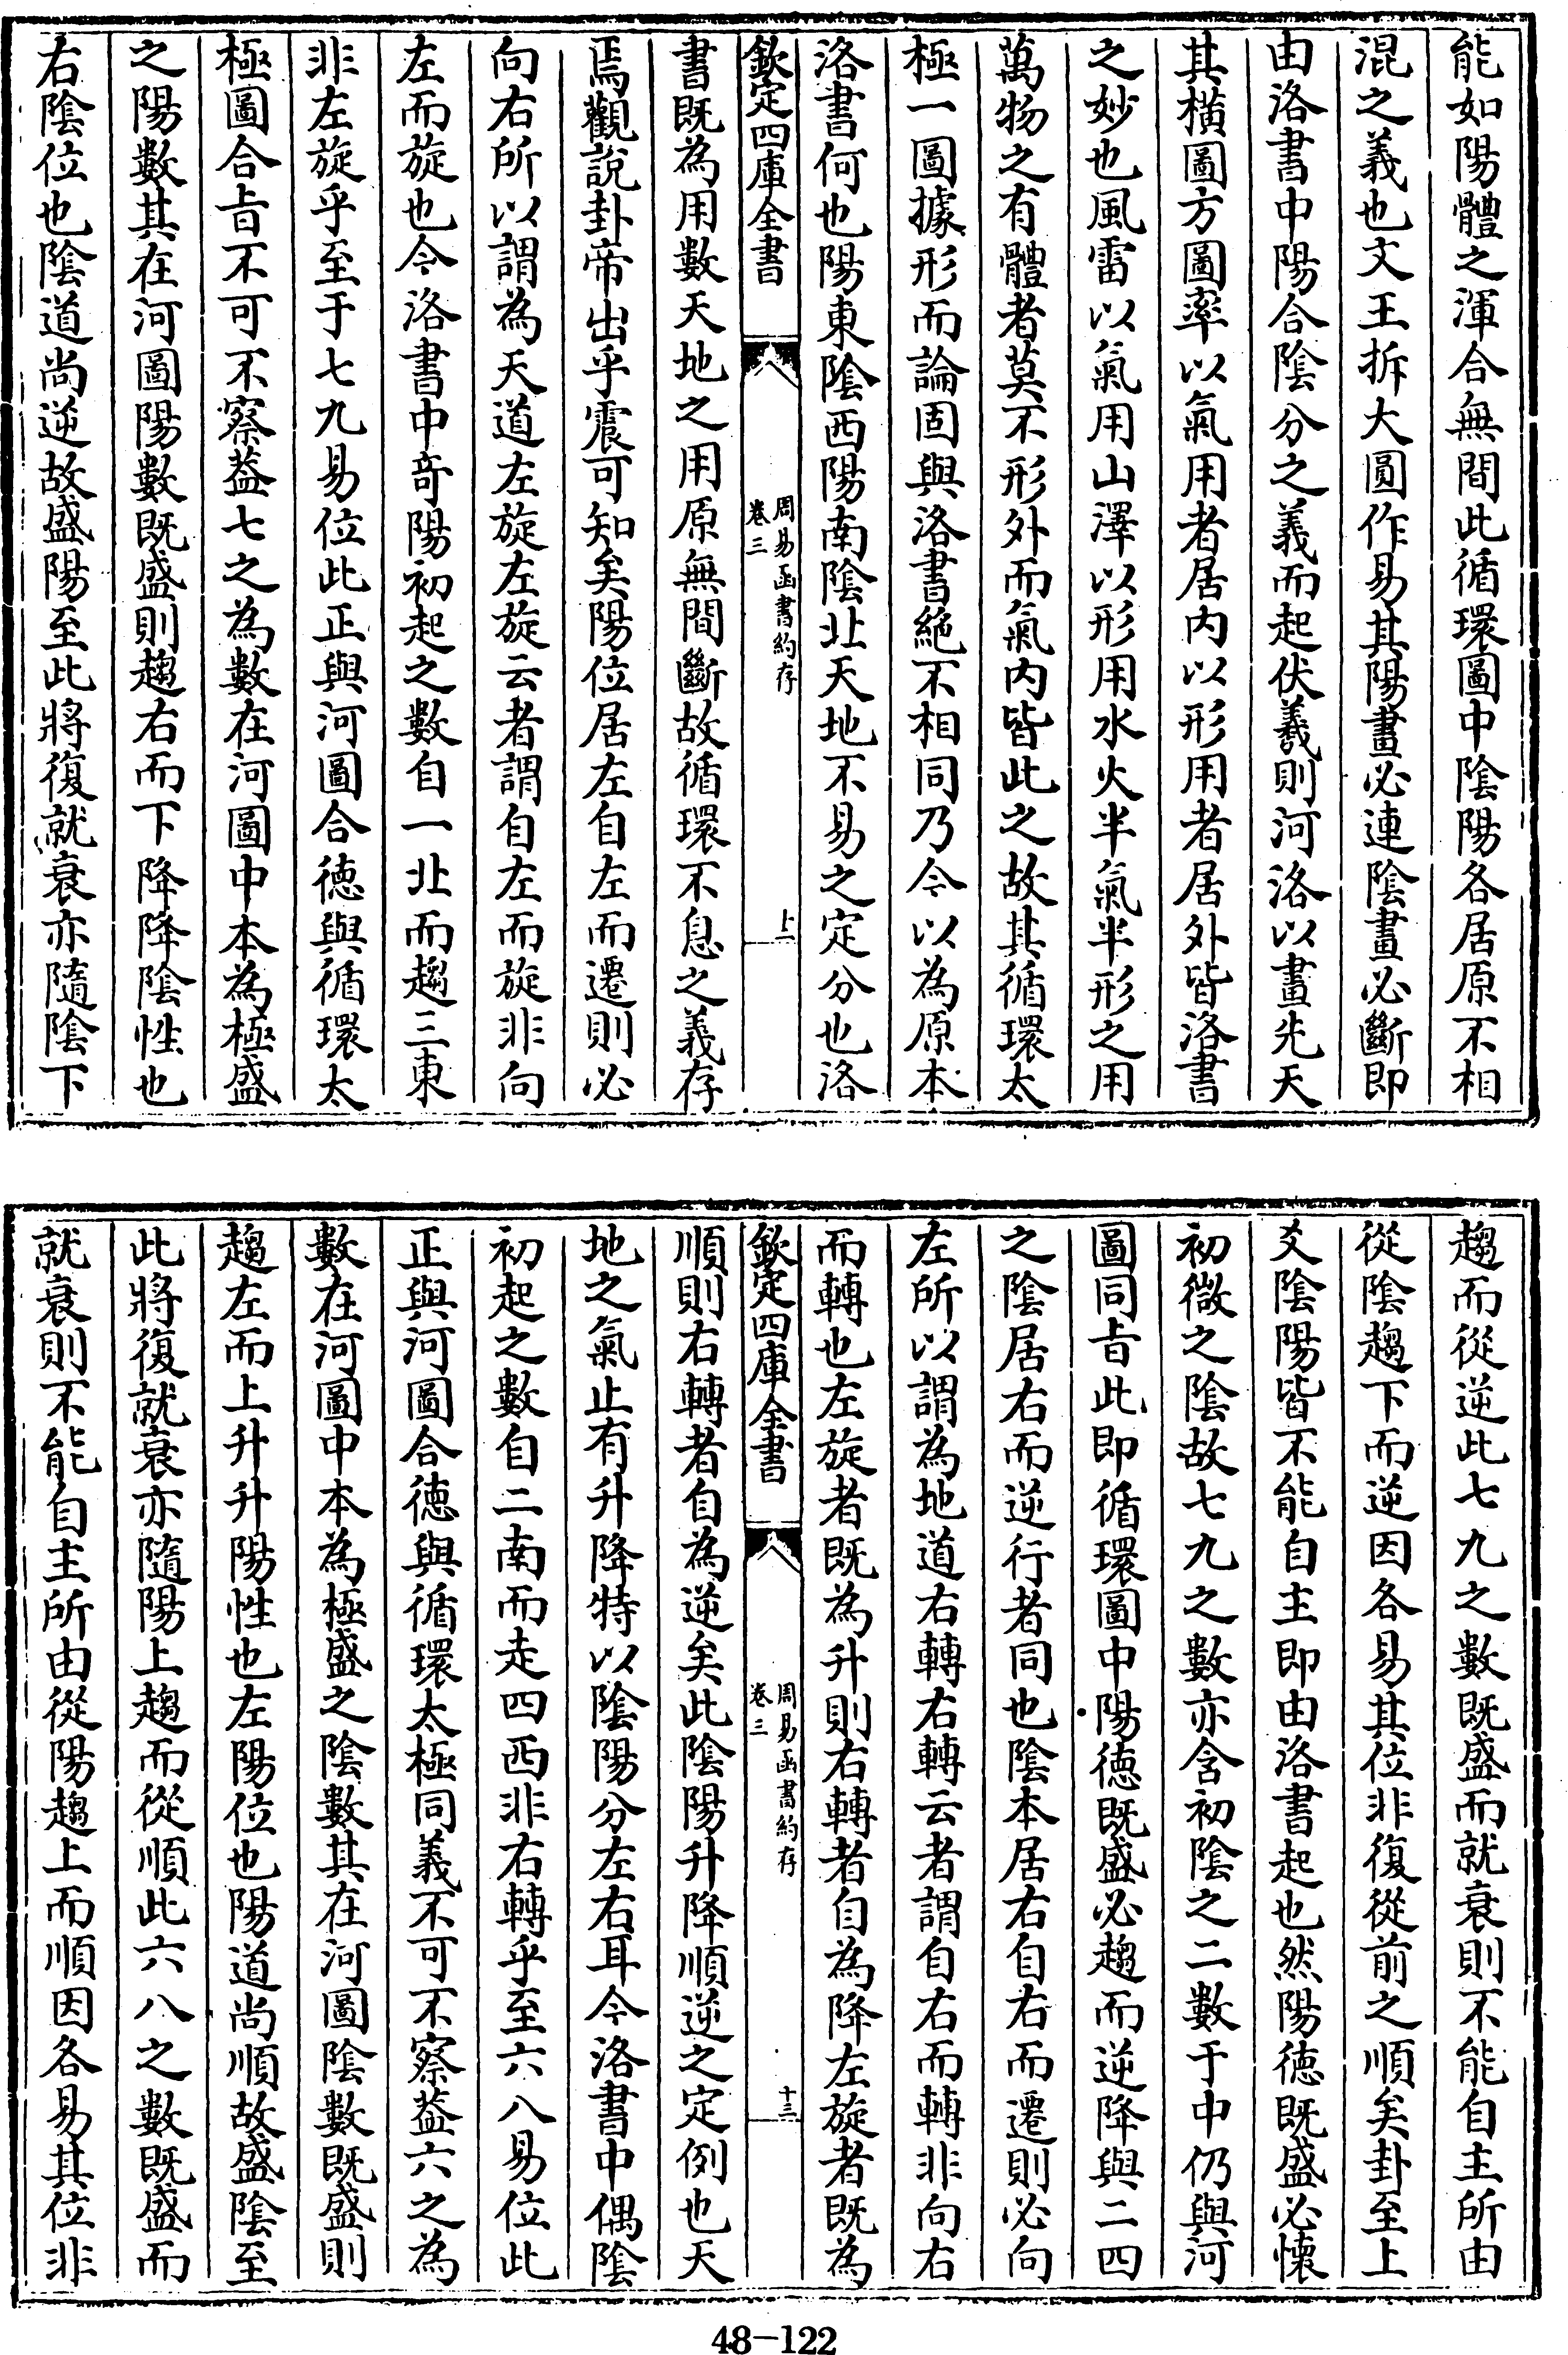 能如陽體之渾合無間此循環圖中陰陽各居原不相
混之義也文王拆大圓作易其陽畫必連陰畫必斷即
由洛書中陽合陰分之義而起伏羲則河洛以畫先天
其橫圖方圖率以氣用者居内以形用者居外皆洛書
之妙也風雷以氣用山澤以形用水火半氣半形之用
萬物之有體者莫不形外而氣内皆此之故其循環太
極一圖據形而論固與洛書絶不相同乃今以為原本
洛書何也陽東陰西陽南陰北天地不易之定分也洛
欽定四庫全書
周易函書約存
卷三
十二
書既為用數天地之用原無間斷故循環不息之義存
焉觀說卦帝出乎震可知矣陽位居左自左而遷則必
向右所以謂為天道左旋左旋云者謂自左而旋非向
左而旋也今洛書中竒陽初起之數自一北而趨三東
非左旋乎至于七九易位此正與河圖合徳與循環太
極圖合㫖不可不察葢七之為數在河圖中本為極盛
之陽數其在河圖陽數既盛則趨右而下降降陰性也
右陰位也陰道尚逆故盛陽至此將復就衰亦隨陰下
趨而從逆此七九之數既盛而就衰則不能自主所由
從陰趨下而逆因各易其位非復從前之順矣卦至上
爻陰陽皆不能自主即由洛書起也然陽徳既盛必懐
初微之陰故七九之數亦含初陰之二數于中仍與河
圖同㫖此即循環圖中陽徳既盛必趨而逆降與二四
之陰居右而逆行者同也陰本居右自右而遷則必向
左所以謂為地道右轉右轉云者謂自右而轉非向右
而轉也左旋者既為升則右轉者自為降左旋者既為
欽定四庫全書
周易函書約存
卷三
十三
順則右轉者自為逆矣此陰陽升降順逆之定例也天
地之氣止有升降特以陰陽分左右耳今洛書中偶陰
初起之數自二南而走四西非右轉乎至六八易位此
正與河圖合徳與循環太極同義不可不察葢六之為
數在河圖中本為極盛之陰數其在河圖陰數既盛則
趨左而上升升陽性也左陽位也陽道尚順故盛陰至
此將復就衰亦隨陽上趨而從順此六八之數既盛而
就衰則不能自主所由從陽趨上而順因各易其位非
48-122